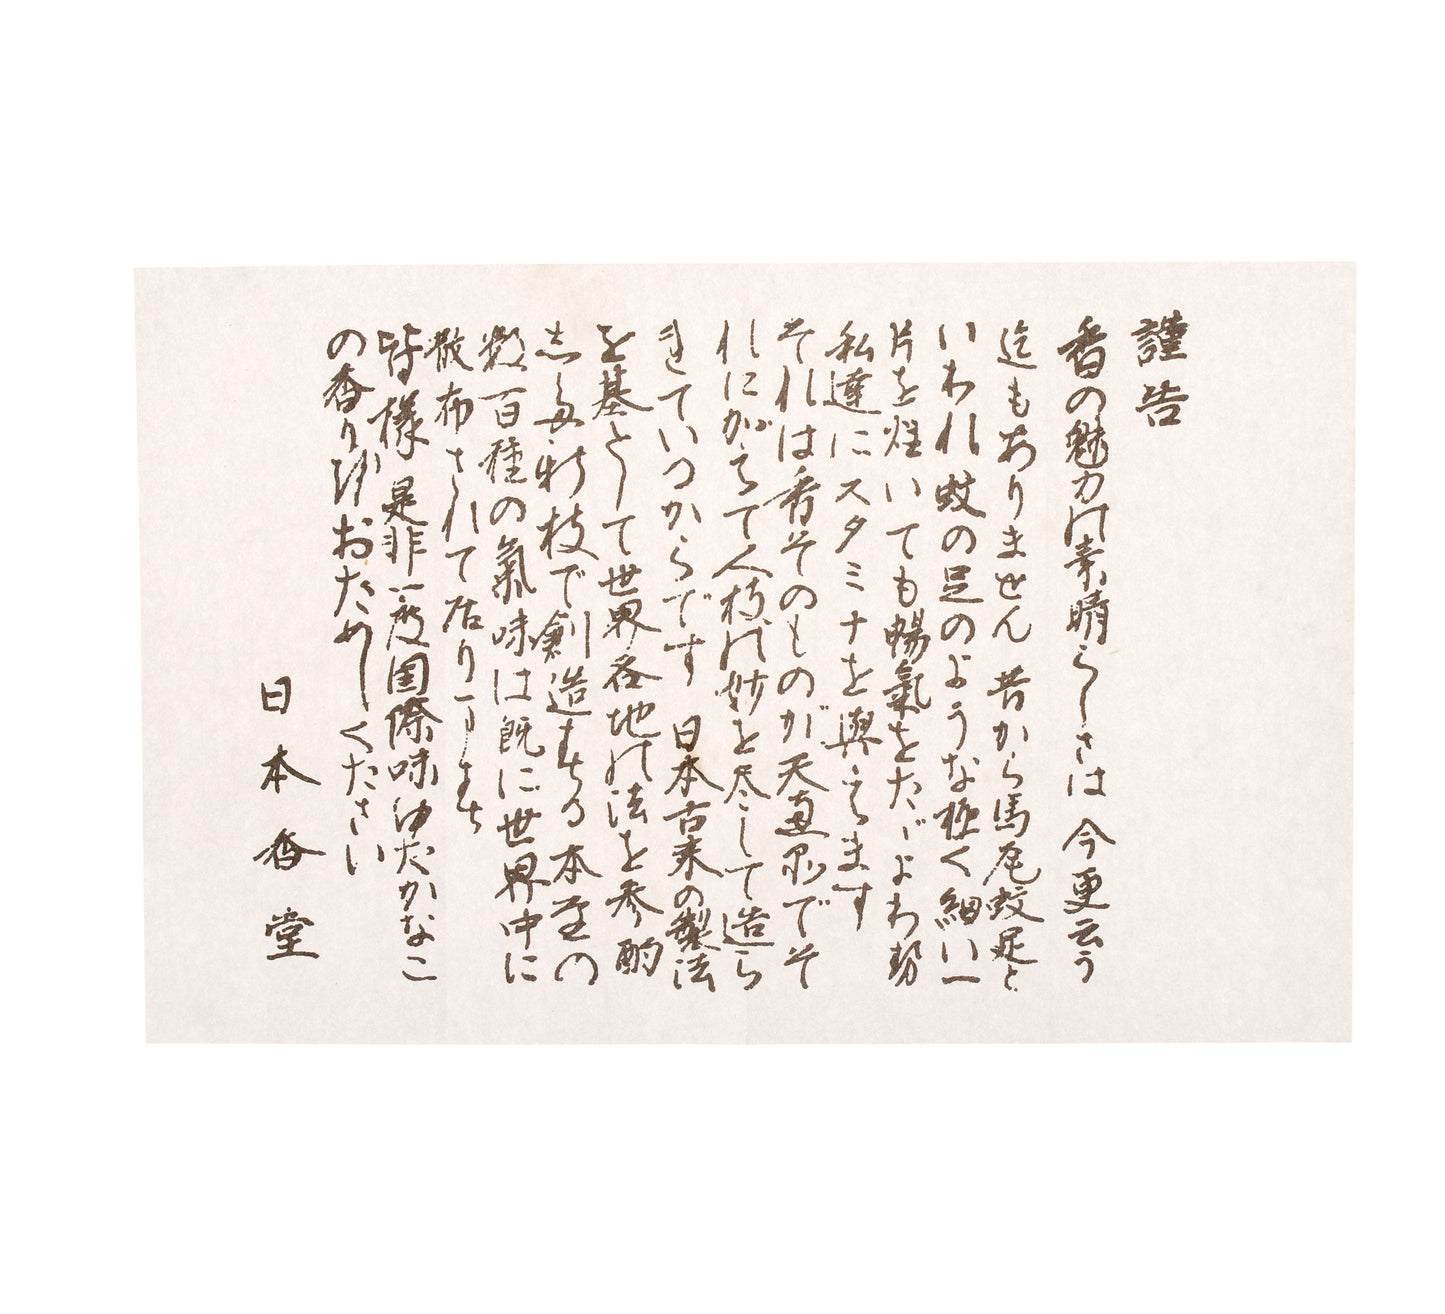 謹告
香の魅力は素晴らしさは 今更云う
迄もありません 昔から馬尾蚊足と
いわれ 蚊の足のような極く細い一
片を炷いても暢氣をたゞよわ勢
私達にスタミナを與えます
それは香そのものが天与でそ
れにが えて人技は妙を尽して造ら
きているからです 日本古来の製法
を基として世界各地の法を参酌
し 新技で創造する本堂の
数百種の氣味は既に世界中に
散布されて居ります
皆様 是非一度国際味ゆたかなこ
の香りをおためしください
日本香堂